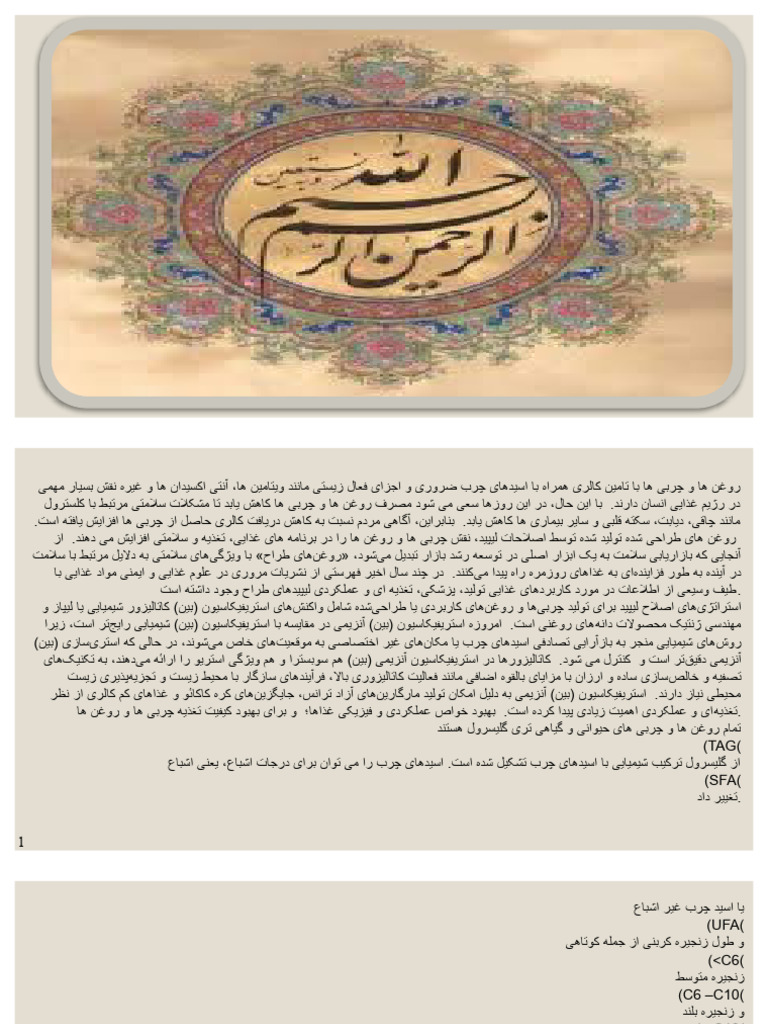 بسم الله الرحمن الرحیم
و به نستعین
روغن ها و چربی ها با تامین کالری همراه با اسیدهای چرب ضروری و اجزای فعال زیستی مانند ویتامین ها، آنتی اکسیدان ها و غیره نقش بسیار مهمی
در رژیم غذایی انسان دارند.  با این حال، در این روزها سعی می شود مصرف روغن ها و چربی ها کاهش یابد تا مشکلات سلامتی مرتبط با کلسترول
مانند چاقی، دیابت، سکته قلبی و سایر بیماری ها کاهش یابد.  بنابراین، آگاهی مردم نسبت به کاهش دریافت کالری حاصل از چربی ها افزایش یافته است.
روغن های طراحی شده تولید شده توسط اصلاحات لیپید، نقش چربی ها و روغن ها را در برنامه های غذایی، تغذیه و سلامتی افزایش می دهند.  از
آنجایی که بازاریابی سلامت به یک ابزار اصلی در توسعه رشد بازار تبدیل می‌شود، «روغن‌های طراح» با ویژگی‌های سلامتی به دلایل مرتبط با سلامت
در آینده به طور فزاینده‌ای به غذاهای روزمره راه پیدا می‌کنند.  در چند سال اخیر فهرستی از نشریات مروری در علوم غذایی و ایمنی مواد غذایی با
.طیف وسیعی از اطلاعات در مورد کاربردهای غذایی تولید، پزشکی، تغذیه ای و عملکردی لیپیدهای طراح وجود داشته است
استراتژی‌های اصلاح لیپید برای تولید چربی‌ها و روغن‌های کاربردی یا طراحی‌شده شامل واکنش‌های استریفیکاسیون (بین) کاتالیزور شیمیایی یا لیپاز و
مهندسی ژنتیک محصولات دانه‌های روغنی است.  امروزه استریفیکاسیون (بین) آنزیمی در مقایسه با استریفیکاسیون (بین) شیمیایی رایج‌تر است، زیرا
روش‌های شیمیایی منجر به بازآرایی تصادفی اسیدهای چرب یا مکان‌های غیر اختصاصی به موقعیت‌های خاص می‌شوند، در حالی که استری‌سازی (بین)
آنزیمی دقیق‌تر است و  کنترل می شود.  کاتالیزورها در استریفیکاسیون آنزیمی (بین) هم سوبسترا و هم ویژگی استریو را ارائه می‌دهند، به تکنیک‌های
تصفیه و خالص‌سازی ساده و ارزان با مزایای بالقوه اضافی مانند فعالیت کاتالیزوری بالا، فرآیندهای سازگار با محیط زیست و تجزیه‌پذیری زیست
محیطی نیاز دارند.  استریفیکاسیون (بین) آنزیمی به دلیل امکان تولید مارگارین‌های آزاد ترانس، جایگزین‌های کره کاکائو و غذاهای کم کالری از نظر
.تغذیه‌ای و عملکردی اهمیت زیادی پیدا کرده است.  بهبود خواص عملکردی و فیزیکی غذاها؛  و برای بهبود کیفیت تغذیه چربی ها و روغن ها
تمام روغن ها و چربی های حیوانی و گیاهی تری گلیسرول هستند
(TAG)
از گلیسرول ترکیب شیمیایی با اسیدهای چرب تشکیل شده است. اسیدهای چرب را می توان برای درجات اشباع، یعنی اشباع
(SFA)
.تغییر داد
1
یا اسید چرب غیر اشباع
(UFA)
و طول زنجیره کربنی از جمله کوتاهی
(<C6)
زنجیره متوسط
(C6 –C10)
و زنجیره بلند